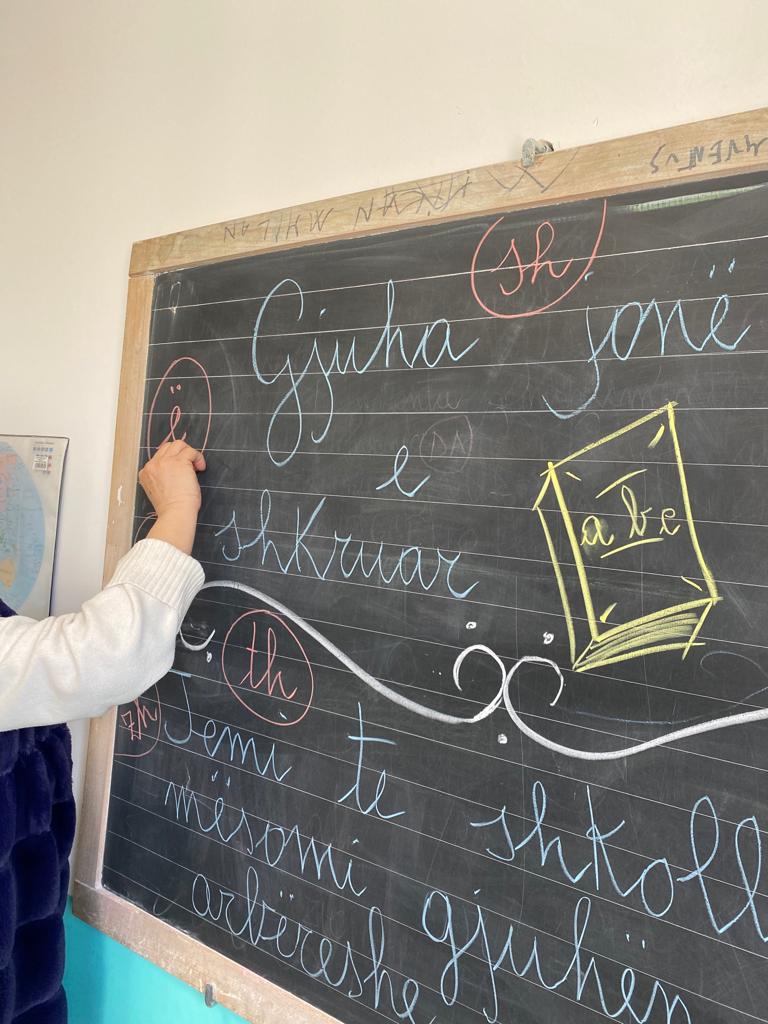 sh
Gjuha jonë
ë
e
abc
shkruar
th
zh
Jemi te shkoll
mësomi gjuhën
arbëreshe